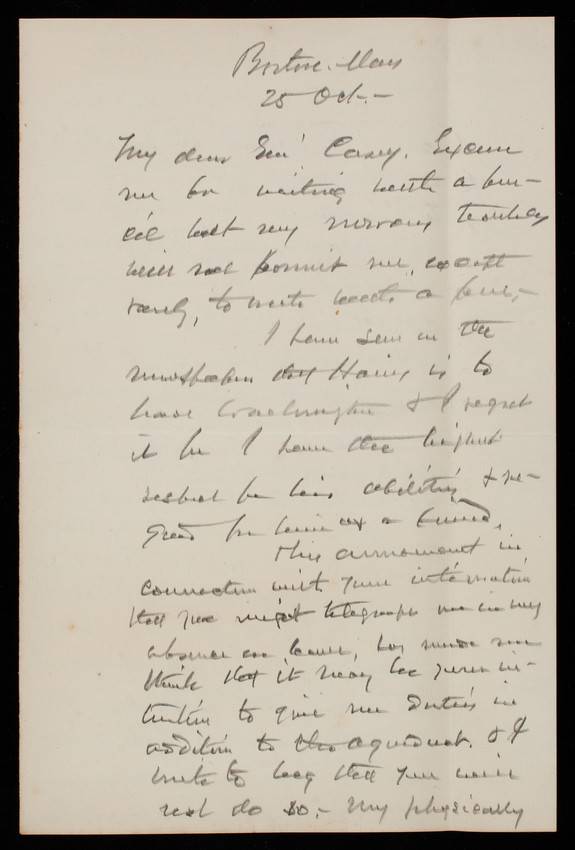 Boston. Mass
25 Oct.-
My dear Gen'l Casey. Excuse
me for writing with a pen-
cil but my nervous troubles
will not permit me, except
rarely, to write with a pen.-
I have seen in the
newspapers that Hains is to
leave Washington & I regret
it for I have the highest
respect for his abilities & re-
gard for him as a friend.
This announcement in
connection with your intimation
that you might telegraph me in my
absence on leave, has made me
think that it may be your in-
tention to give me duties in
addition to the aqueduct. & I
write to beg that you will
not do so.- My physically